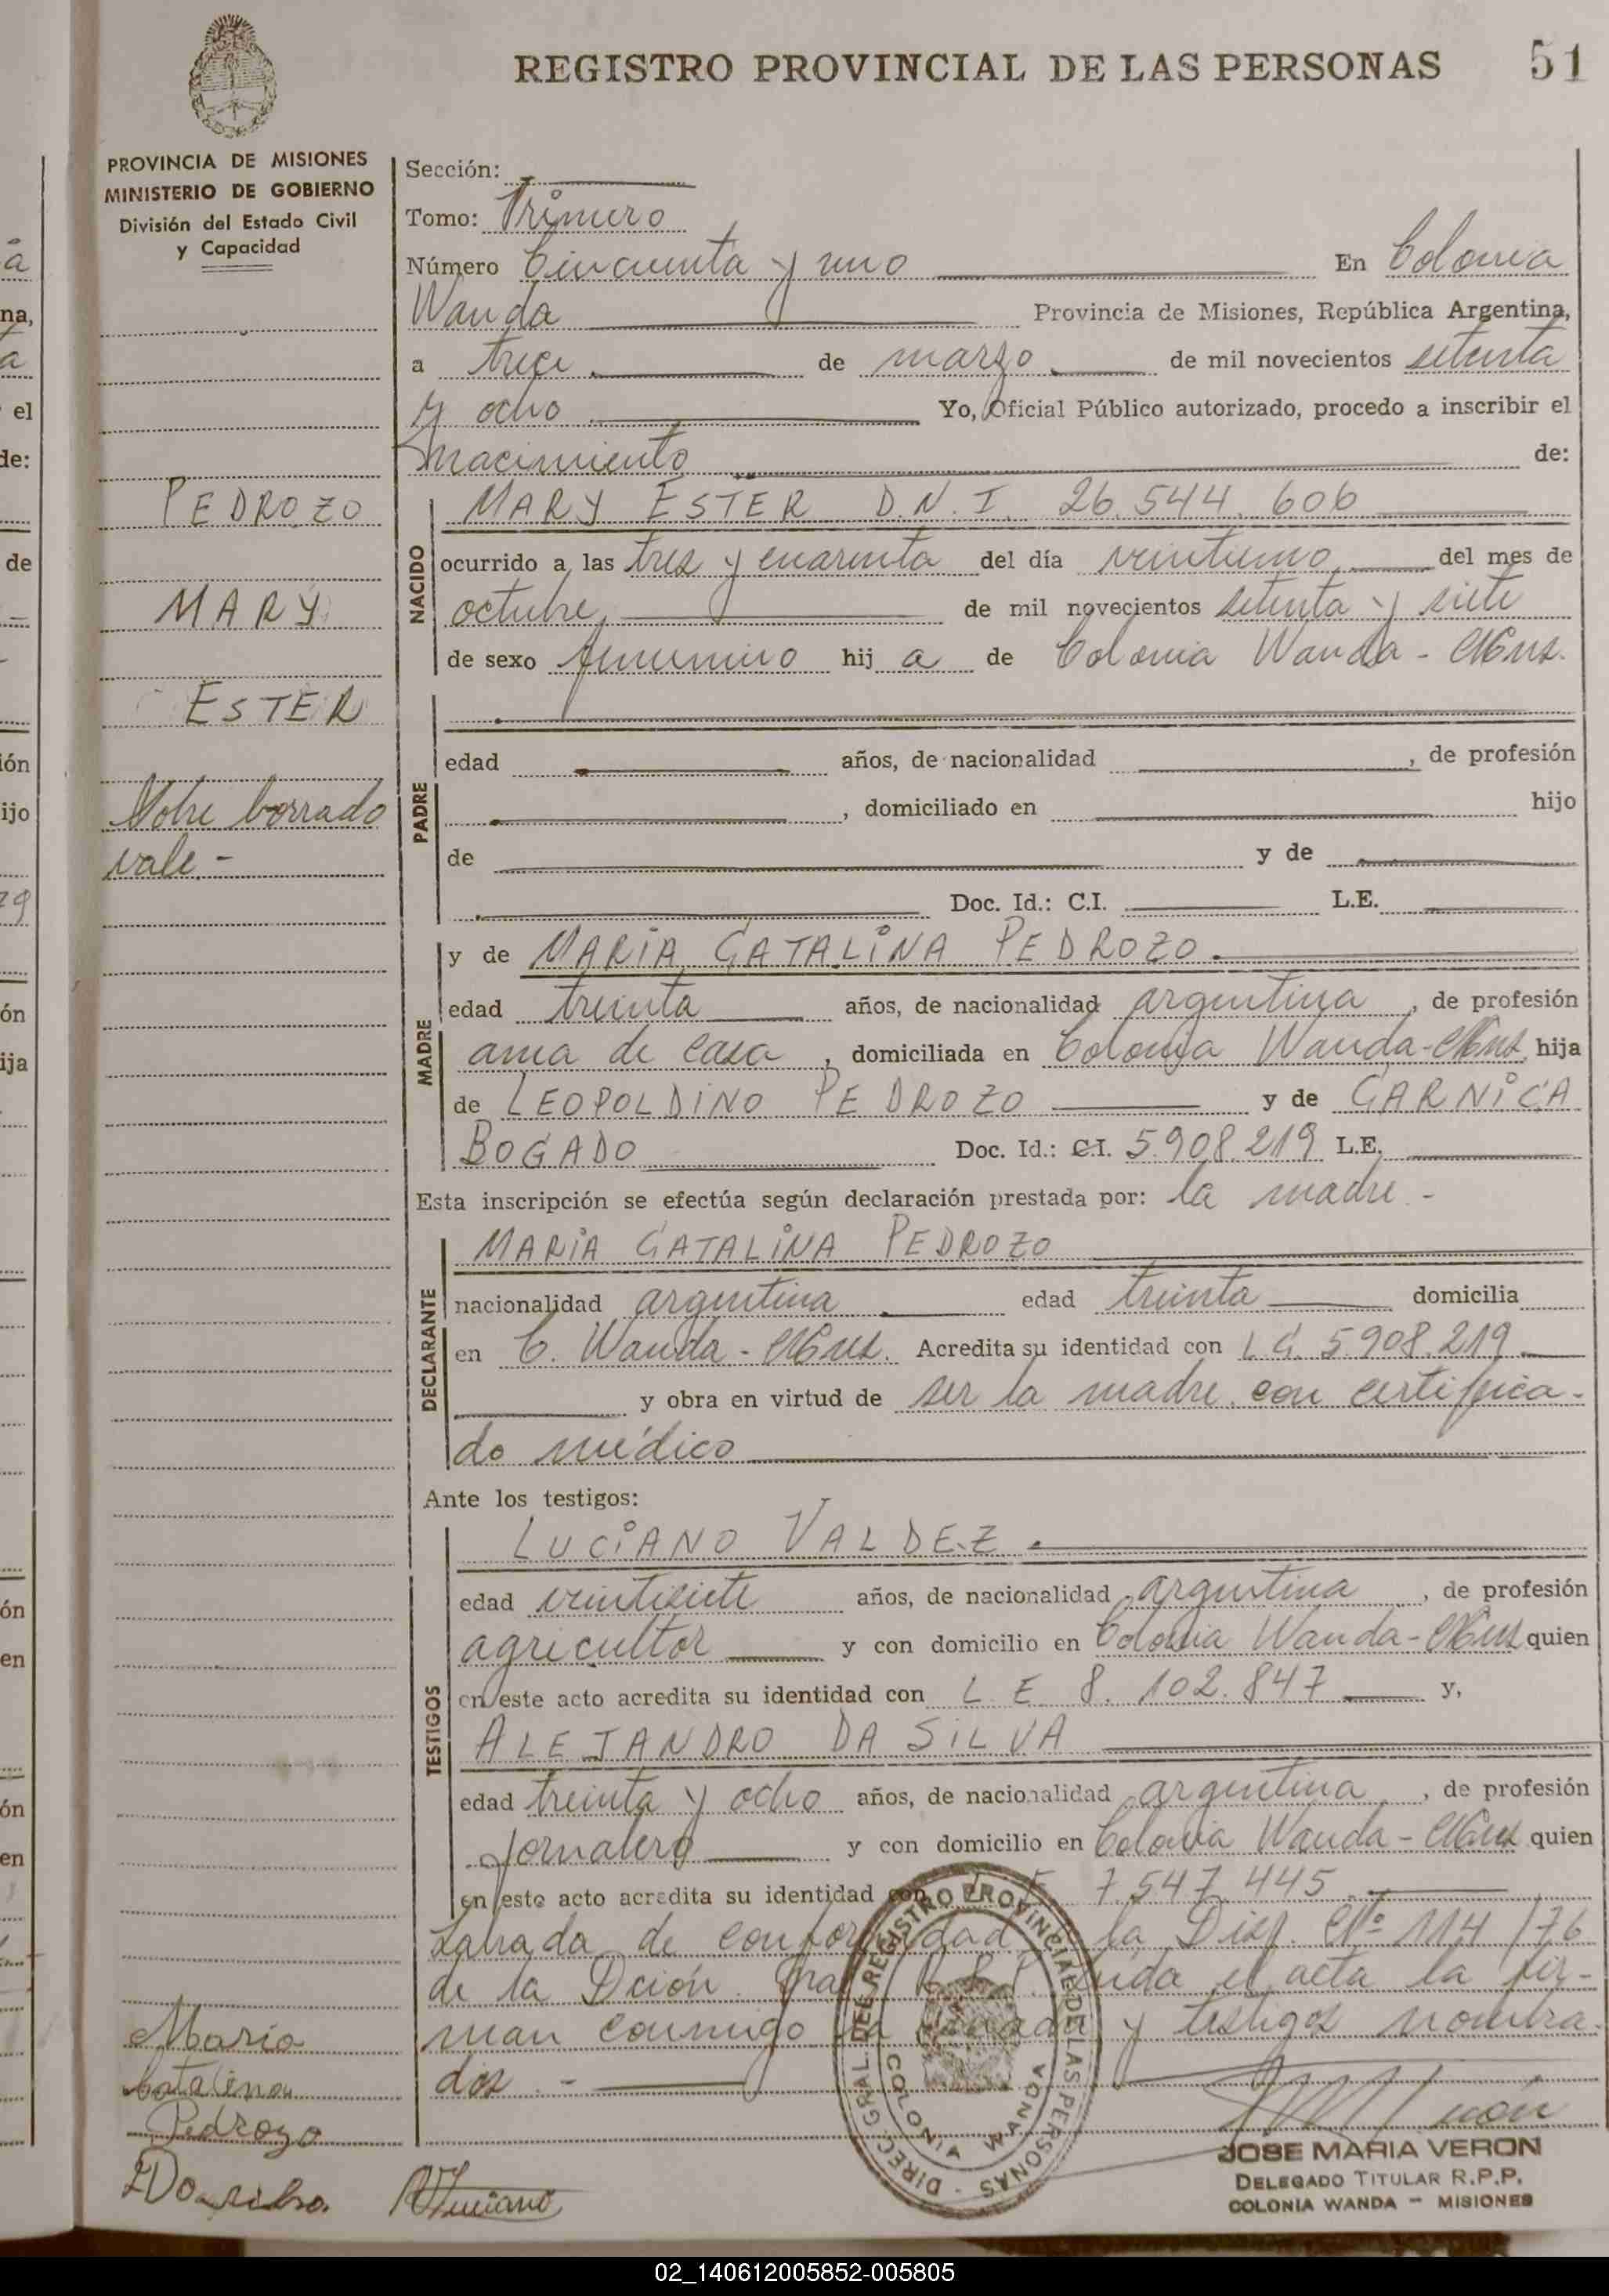 REGISTRO PROVINCIAL DE LAS PERSONAS 51
PROVINCIA DE MISIONES
MINISTERIO DE GOBIERNO
División del Estado Civil
y Capacidad
PEDROZO
MARY
ESTER
Sobre borrado
vale.-
Sección:
Tomo: Primero
Número Cincuenta y uno En Colonia
Wanda Provincia de Misiones, República Argentina,
a trece de marzo de mil novecientos setenta
y ocho Yo, Oficial Público autorizado, procedo a inscribir el
nacimiento de:
NACIDO
MARY ESTER D.N.I. 26.544.606
ocurrido a las tres y cuarenta del día veintiuno del mes de
octubre de mil novecientos setenta y siete
de sexo femenino hij a de Colonia Wanda - Mnes.
PADRE
edad años, de nacionalidad , de profesión
, domiciliado en hijo
de y de
Doc. Id.: C.I. L.E.
MADRE
y de MARIA CATALINA PEDROZO.
edad treinta años, de nacionalidad argentina, de profesión
ama de casa, domiciliada en Colonia Wanda-Mnes, hija
de LEOPOLDINO PEDROZO y de CARNICA
BOGADO Doc. Id.: C.I. 5.908.219 L.E.
Esta inscripción se efectúa según declaración prestada por: la madre -
DECLARANTE
MARIA CATALINA PEDROZO
nacionalidad argentina edad treinta domicilia
en C. Wanda - Mnes. Acredita su identidad con L C. 5.908.219
y obra en virtud de ser la madre, con certifica-
do médico
Ante los testigos:
TESTIGOS
LUCIANO VALDEZ.
edad veintisiete años, de nacionalidad argentina, de profesión
agricultor y con domicilio en Colonia Wanda-Mnes quien
en este acto acredita su identidad con L E 8.102.847 y,
ALEJANDRO DA SILVA
edad treinta y ocho años, de nacionalidad argentina, de profesión
Jornalero y con domicilio en Colonia Wanda-Mnes quien
en este acto acredita su identidad con 7.547.445
Labrada de conformidad la Disp. Nº 114/76
de la Dción. Gral R.P.P. Leída el acta la fir-
man conmigo la y testigos nombra
dos.-
Maria
Catalina
Pedrozo
Luciano
DIREC. GRAL. DEL REGISTRO PROVINCIAL DE LAS PERSONAS -
COLONIA WANDA
JOSE MARIA VERON
DELEGADO TITULAR R.P.P.
COLONIA WANDA - MISIONES
na,
el
de:
de
ión
ijo
ón
ija
ón
en
ón
en
02_140612005852-005805